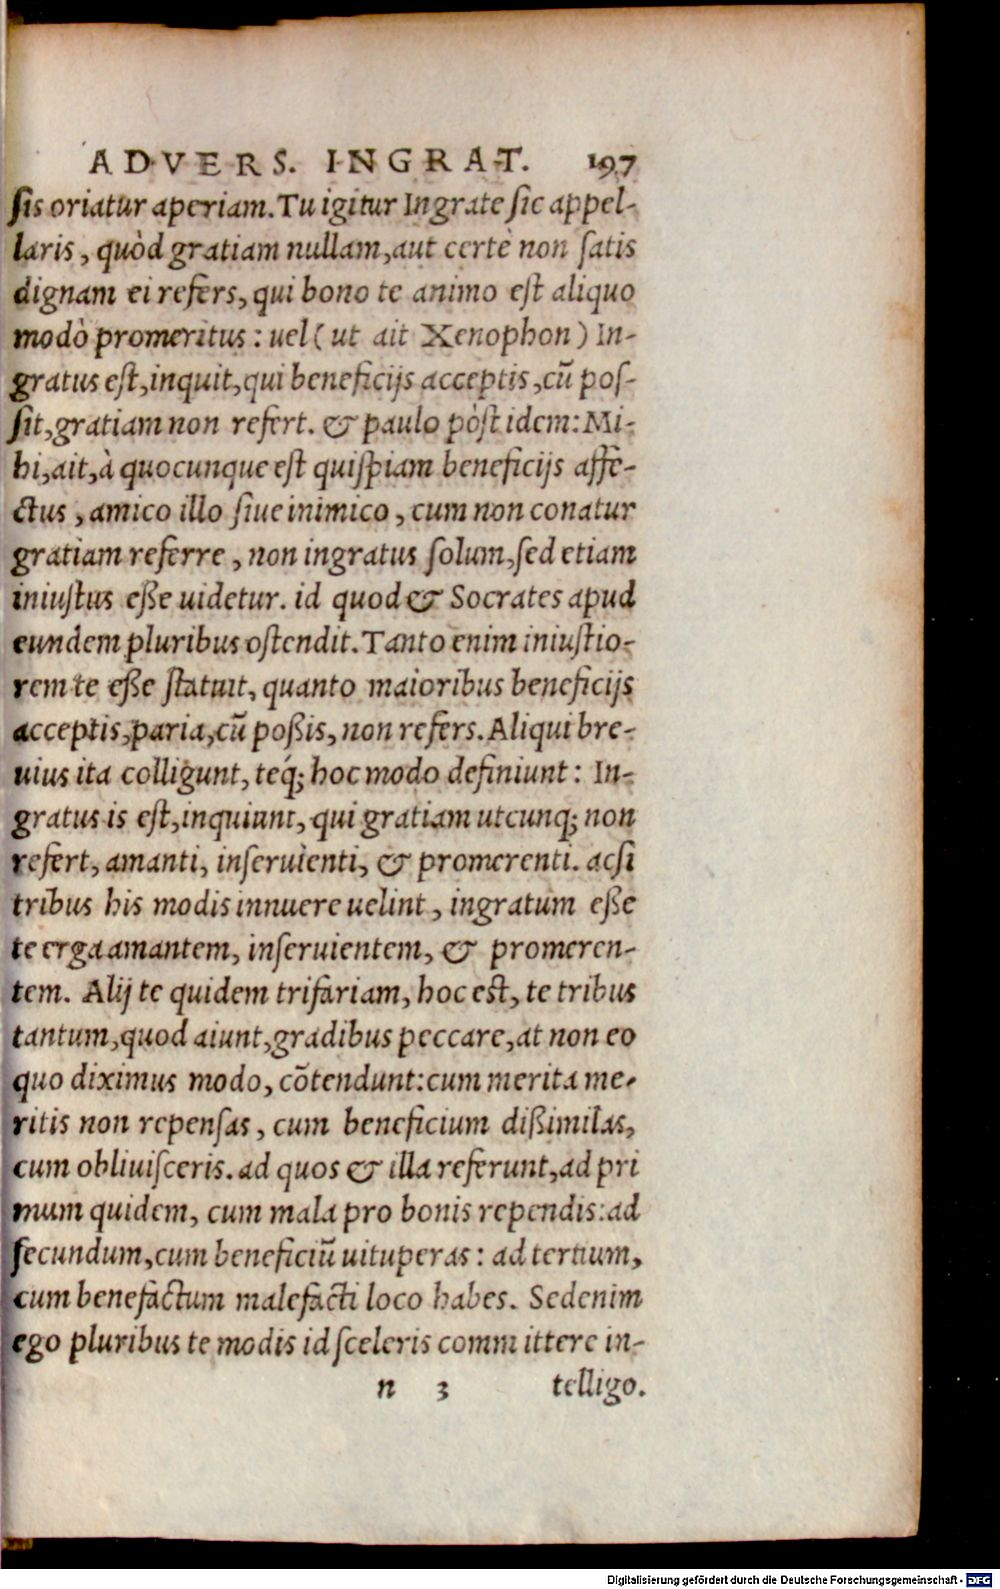 ADVERS. INGRAT. 197
ſis oriatur aperiam. Tu igitur Ingrate ſic appel-
laris, quòd gratiam nullam, aut certè non ſatis
dignam ei refers, qui bono te animo eſt aliquo
modò promeritus: uel (ut ait Xenophon) In-
gratus eſt, inquit, qui beneficijs acceptis, cũ poſ-
ſit, gratiam non refert. & paulo pòſt idem: Mi-
hi, ait, à quocunque eſt quiſpiam beneficijs affe-
ctus, amico illo ſiue inimico, cum non conatur
gratiam referre, non ingratus ſolum, ſed etiam
iniuſtus eße uidetur. id quod & Socrates apud
eundem pluribus oſtendit. Tanto enim iniuſtio-
rem te eße ſtatuit, quanto maioribus beneficijs
acceptis, paria, cũ poßis, non refers. Aliqui bre-
uius ita colligunt, teq́; hoc modo definiunt: In-
gratus is eſt, inquiunt, qui gratiam utcunq; non
refert, amanti, inſeruienti, & promerenti. acſi
tribus his modis innuere uelint, ingratum eße
te erga amantem, inſeruientem, & promeren-
tem. Alij te quidem trifariam, hoc eſt, te tribus
tantum, quod aiunt, gradibus peccare, at non eo
quo diximus modo, cõtendunt: cum merita me-
ritis non repenſas, cum beneficium dißimilas,
cum obliuiſceris. ad quos & illa referunt, ad pri
mum quidem, cum mala pro bonis rependis: ad
ſecundum, cum beneficiũ uituperas: ad tertium,
cum benefactum malefacti loco habes. Sedenim
ego pluribus te modis id ſceleris comm ittere in-
n 3 telligo.
Digitalisierung gefördert durch die Deutsche Forschungsgemeinschaft - DFG